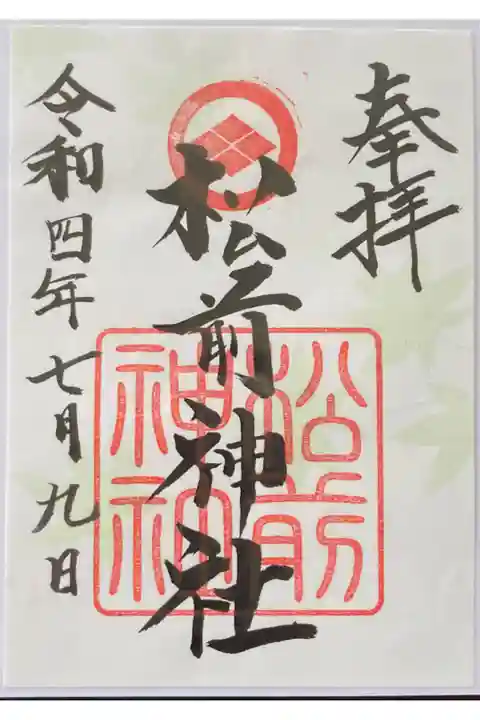 奉拝
松前神社
松前
神社
令和四年七月九日